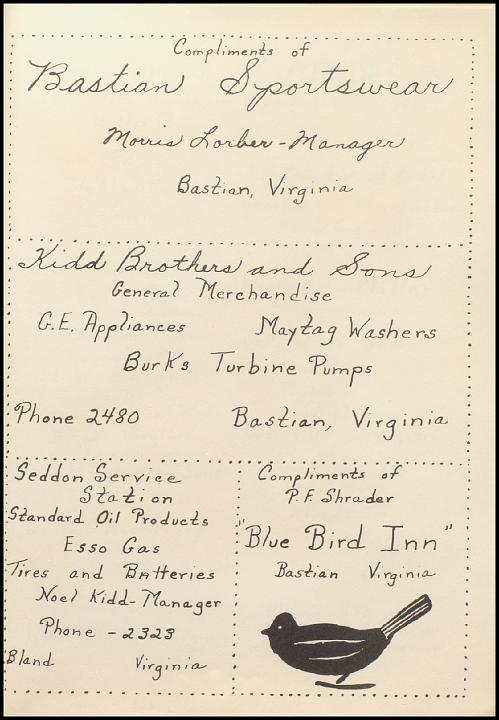 Compliments of
Bastian Sportswear
Morris Lorber - Manager
Bastian, Virginia
Kidd Brothers and Sons
General Merchandise
G.E. Appliances Maytag Washers
Burks Turbine Pumps
Phone 2480 Bastian, Virginia
Seddon Service
Station
Standard Oil Products
Esso Gas
Tires and Batteries
Noel Kidd - Manager
Phone - 2323
Bland Virginia
Compliments of
P.F. Shrader
"Blue Bird Inn"
Bastian Virginia